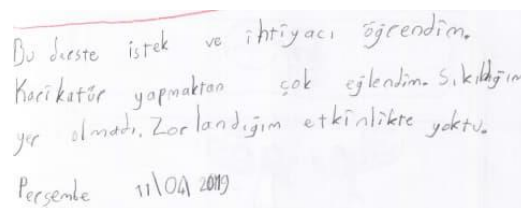 Bu derste istek ve ihtiyacı öğrendim.
Karikatür yapmaktan çok eğlendim. Sıkıldığım
yer olmadı. Zorlandığım etkinlikte yoktu.
Perşembe 11\04\2019